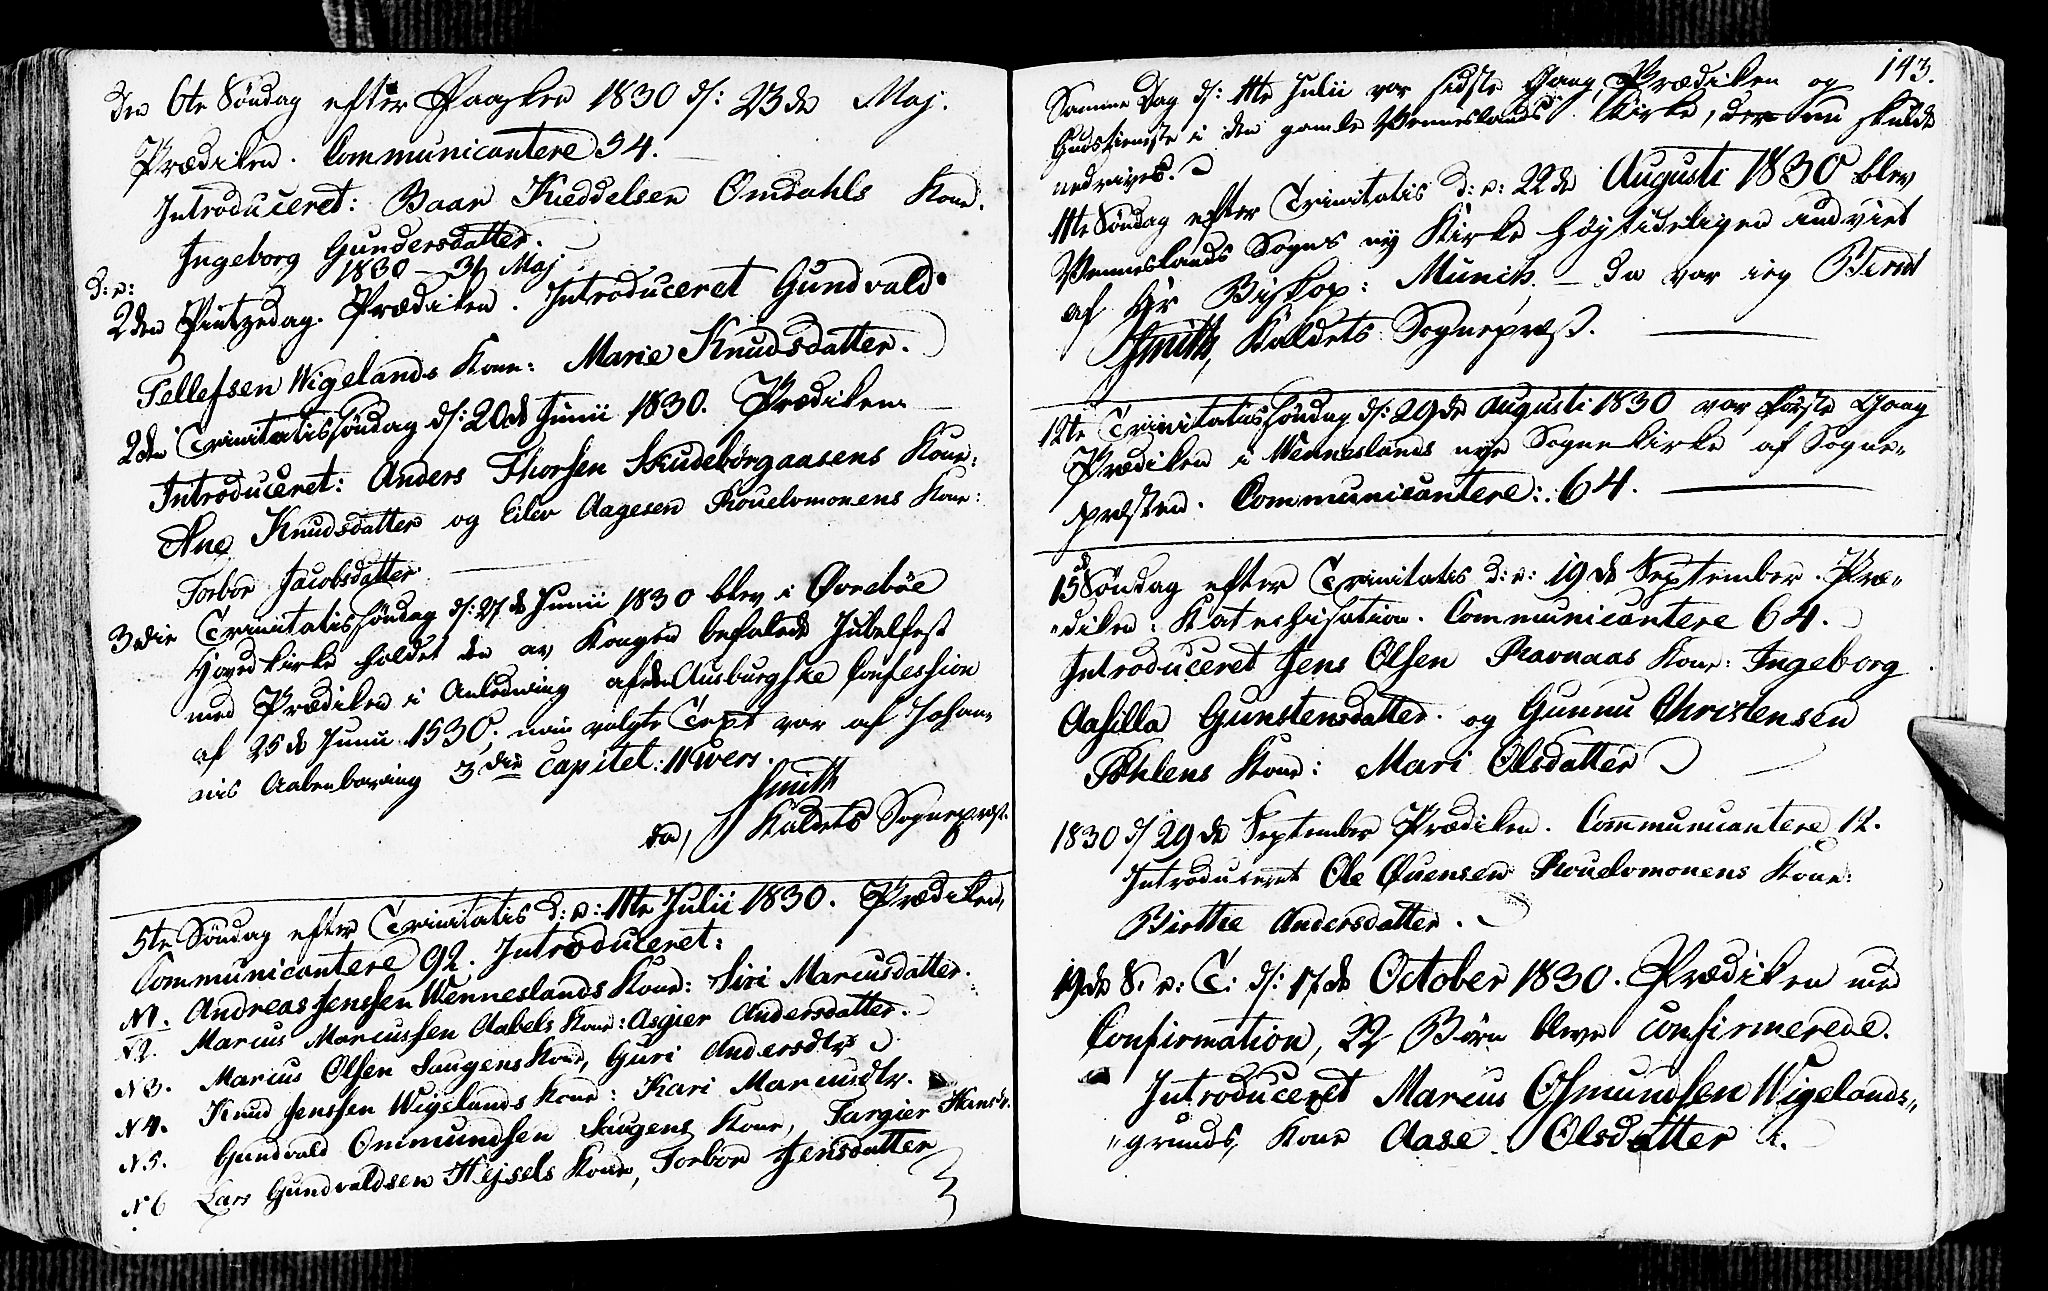 Den 6te Söndag efter Paaske 1830 d/: 23de Maj.
Prædiken. Communicantere 54.
Introduceret: Baar Kieddelsen Omdahls Kone.
Ingeborg Gundersdatter.
1830 - 31 Maj
d: e:
2den Pintzedag. Prædiken. Introduceret Gundvald
Tellefsen Wigelands Kone: Marie Knudsdatter.
2den Trinitatissöndag d/: 20de Junii 1830. Prædiken
Introduceret: Anders Thorsen Skudebörgaasens Kone:
Ane Knudsdatter og Eilev Aagesen Kone:
Torbor Jacobsdatter.
3die Trinitatissöndag d/: 27de Junii 1830 blev i Øvrebøe
Hovedkirke holdet den av Kongen befalede Jubelfest
med Prædiken i Anledning af den Ausburgske Confession
af 25de Junii 1530; min valgte Text var af Johan-
nis Aabenbaring 3die Capitel: 11 Wers.
Smith
Kaldets Sognepræst.
5te Söndag efter Trinitatis d: e: 11te Julii 1830. Prædiken,
Communicantere 92. Introduceret:
N1. Andreas Jenssen Wenneslands Kone: Siri Marcusdatter.
N2. Marcus Marcussen Aabels Kone: Asgier Andersdatter.
N3. Marcus Olsen Saugens Kone, Guri Andersdtr
N4. Knud Jenssen Wigelands Kone: Kari Marcusdtr.
N5. Gundvald Ommundsen Saugens Kone, Targier Hansdr.
N6 Lars Gundvaldsen Hejsels Kone, Torbor Jensdatter
143.
Samme Dag d/: 11te Julii var sidste Gang Prædiken og
Gudstieneste i den gamle Wenneslands Kirke, der nu skulde
nedrives.
11te Söndag efter Trinitatis d: e: 22de Augusti 1830 blev
Wenneslands Sogns ny Kirke höjtideligen indviet
af Hr Biskop: Munch. - Da var ieg Berndt
Smith, Kaldets Sognepræst.
12te Trinitatissöndag d/: 29de Augusti 1830 var förste Gang
Prædiken i Wenneslands nye Sognekirke af Sogne-
præsten. Communicantere: 64.
15de Söndag efter Trinitatis d: e: 19de September. Præ-
diken: Katechisation. Communicantere 64.
Introduceret Jens Olsen Ravnaas Kone: Ingeborg
Aasilla Gunstensdatter. og Gunnu Christensen
Kone: Mari Olsdatter
1830 d/ 29de September Prædiken. Communicantere 12.
Introduceret Ole Kone:
Birthe Andersdatter.
19de S. e: T: d/: 17de October 1830. Prædiken med
Confirmation, 22 Börn bleve confirmerede.
Introduceret Marcus Osmundsen Wigelands-
grunds, Kone Aase Olsdatter